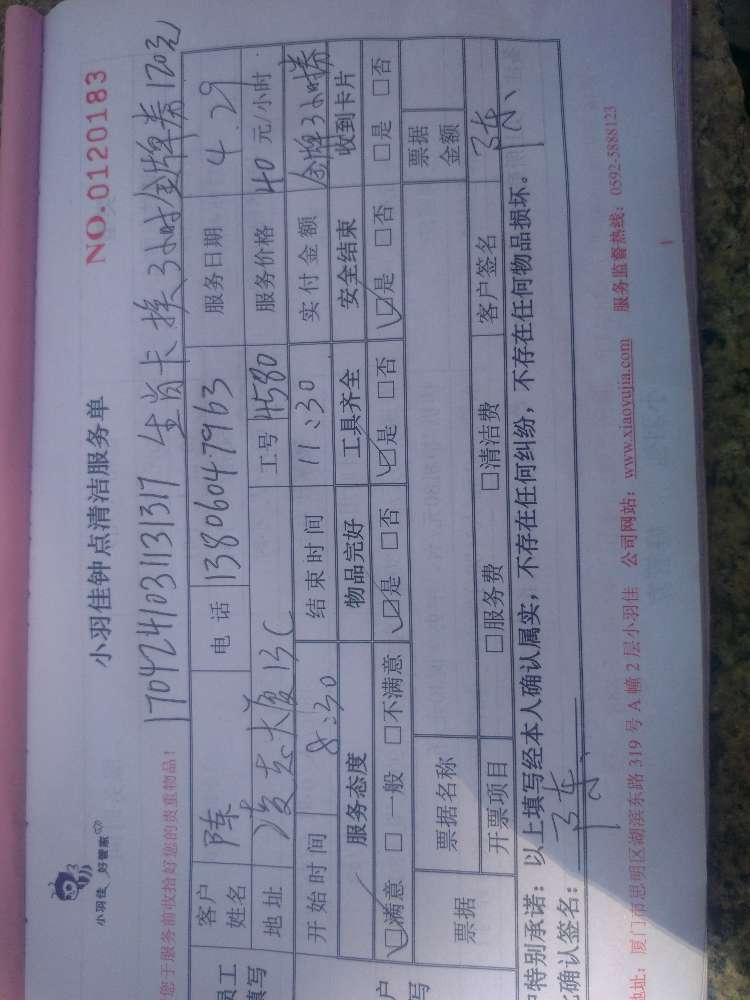 小羽佳 好管家
小羽佳钟点清洁服务单
NO.0120183
您于服务前收拾好您的贵重物品!
1704241031131317 生肖卡换3小时金牌券120元
员工 填写
客户姓名 陈 电话 13806047963 服务日期 4.29
地址 凌志大厦13C 工号 4580 服务价格 40元/小时
开始时间 8:30 结束时间 11:30 实付金额 金牌3小时券
服务态度 物品完好 工具齐全 安全结束 收到卡片
☑满意 □一般 □不满意 ☑是 □否 ☑是 □否 ☑是 □否 □是 □否
户 写
票据 票据名称 票据金额
开票项目 □服务费 □清洁费 客户签名
特别承诺:以上填写经本人确认属实,不存在任何纠纷,不存在任何物品损坏。
确认签名:
地址:厦门市思明区湖滨东路319号A幢2层小羽佳 公司网站:www.xiaoyujia.com 服务监督热线:0592-5888123